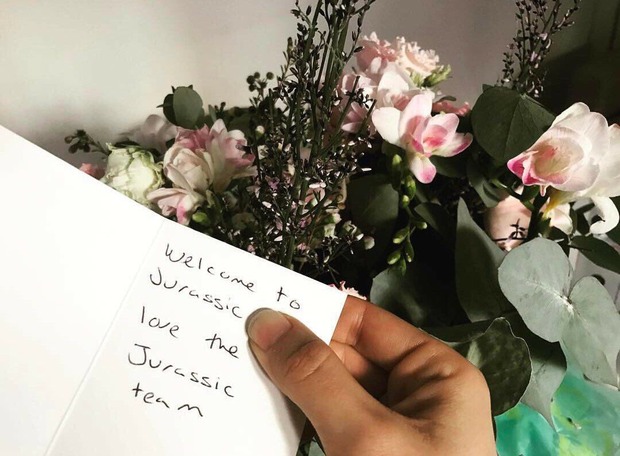 Welcome to
Jurassic
love the
Jurassic
team